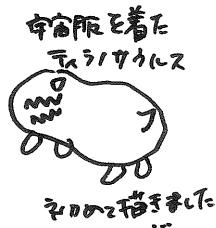 宇宙服を着た
ティラノサウルス
初めて描きました
…